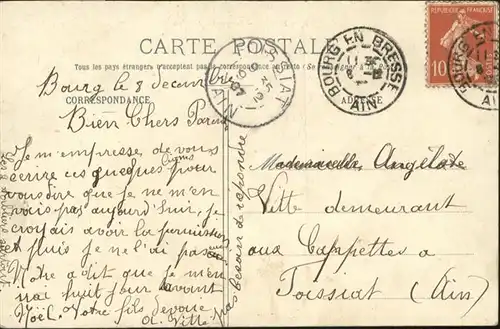 CARTE POSTALE
Tous les pays étrangers n'acceptent pas la correspondance au recto
Bourg le 8 decembre
CORRESPONDANCE
ADRESSE
Bien Chers Parents
Je m'empresse de vous
écrire ces quelques pour
lignes
vous dire que je ne m'en
vais pas aujourd'hui, je
croyais avoir la permission
et puis je ne l'ai pas
Notre a dit que je m'en
irai huit jour avant
Noël. Votre fils devoué
A. Ville
pas besoin de repondre
Mademoiselle Angéla de
Ville demeurant
aux Cappettes a
Tossiat (Ain)
BOURG EN BRESSE
AIN
TOSSIAT
AIN
REPUBLIQUE FRANÇAISE
10
BOURG EN
AIN